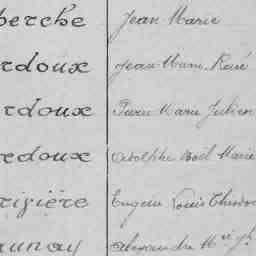 perche Jean Marie
rdoux Jean Marie René
rdoux Pierre Marie Julien
redoux Adolphe Noël Marie
rizière Eugène Louis Théodo
aunay Alexandre Mie